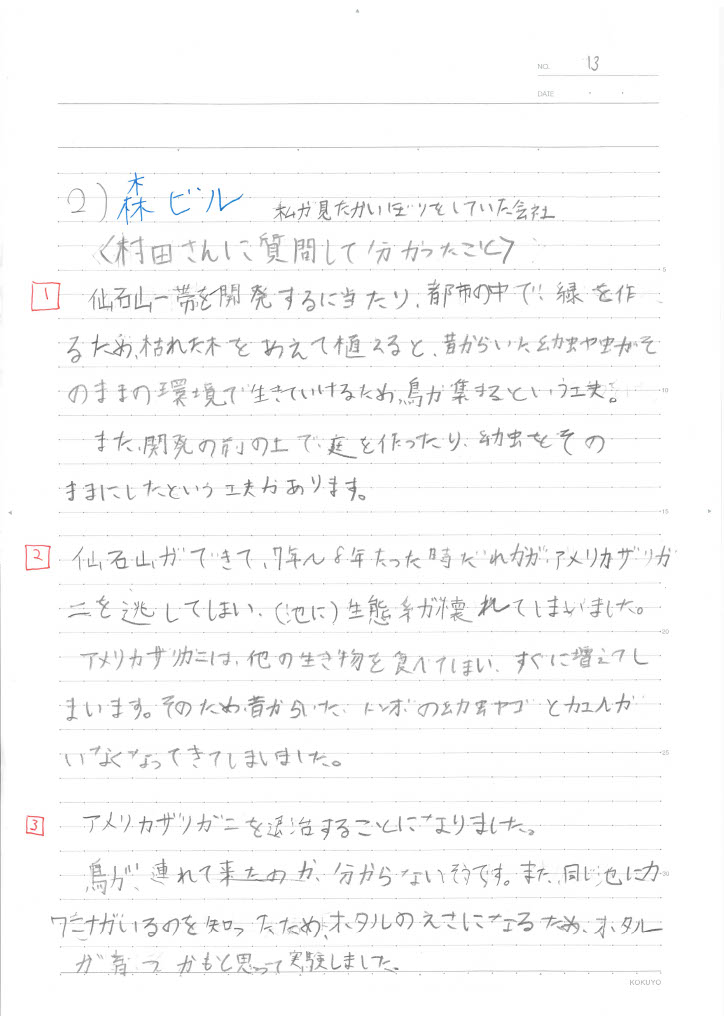 NO. 13
DATE
2) 森ビル 私が見たかいぼりをしていた会社
〈村田さんに質問して分かったこと〉
1 仙石山一帯を開発するに当たり、都市の中で、緑を作
るため、枯れた木をあえて植えると、昔からいた幼虫や虫がそ
のままの環境で生きていけるため、鳥が集まるという工夫。
また、開発の前の土で庭を作ったり、幼虫をその
ままにしたという工夫があります。
2 仙石山ができて、7年〜8年たった時だれかが、アメリカザリガ
ニを逃してしまい、(池に)生態系が壊れてしまいました。
アメリカザリガニは、他の生き物を食べてしまい、すぐに増えてし
まいます。そのため、昔からいた、トンボの幼虫ヤゴとカエルが
いなくなってきてしまいました。
3 アメリカザリガニを退治することになりました。
鳥が、連れて来たのか、分からないそうです。また、同じ池にカ
ワニナがいるのを知ったため、ホタルのえさになるため、ホタル
が育つかもと思って実験しました。
KOKUYO
5
10
15
20
25
30